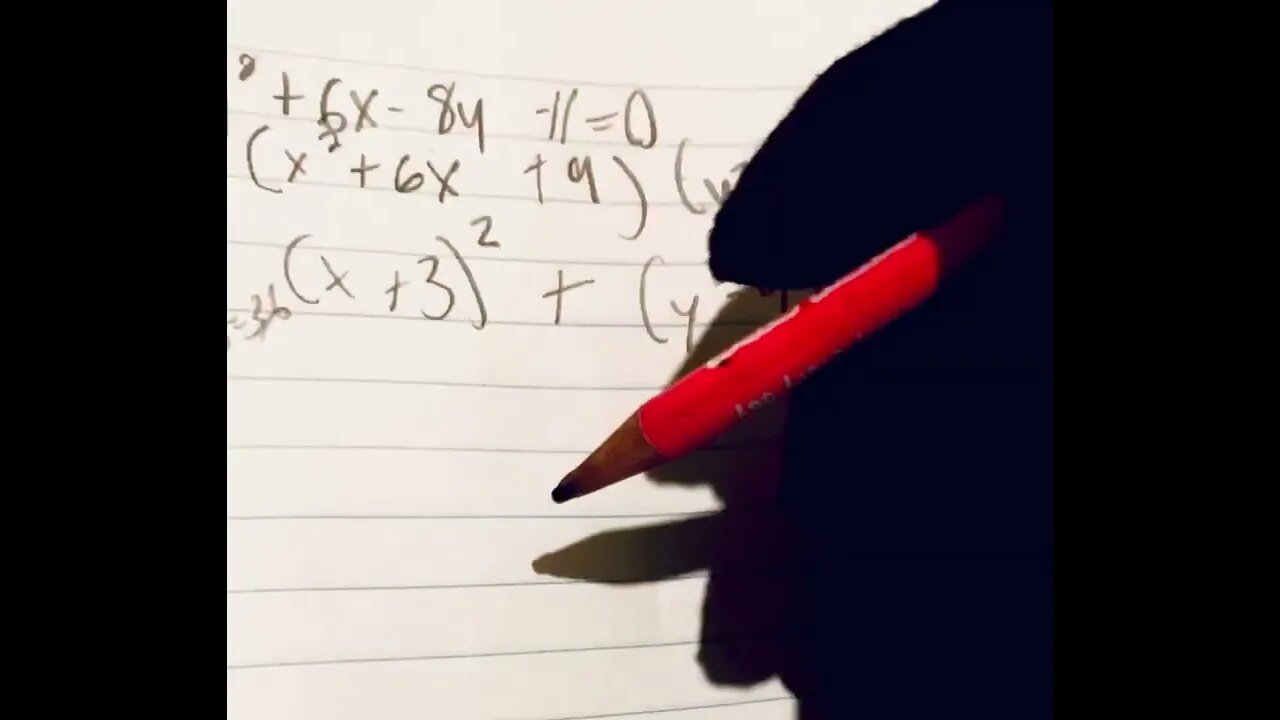 ² + 6x - 8y -11 = 0
(x² + 6x + 9) (y²
= 36 (x + 3)² + (y - 4